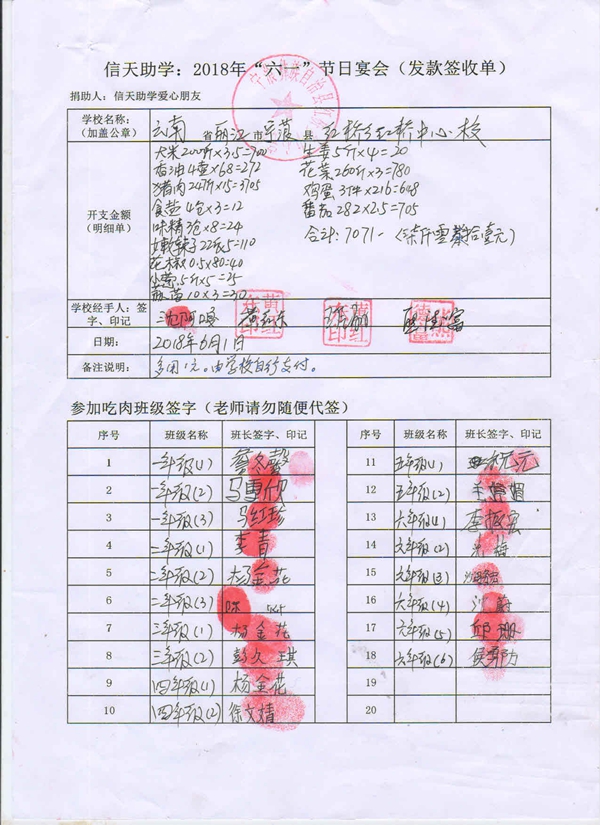 信天助学：2018年“六一”节日宴会（发款签收单）
捐助人：信天助学爱心朋友
学校名称：（加盖公章） 云南省丽江市宁蒗县红桥乡红桥中心校
开支金额（明细单）
大米200斤×3.5=700 生姜5斤×4=20
香油4壶×68=272 花菜260斤×3=780
猪肉247斤×15=3705 鸡蛋3件×216=648
食盐4包×3=12 番茄282×2.5=705
味精3包×8=24 合计：7071-
嫩辣子22斤×5=110
花椒0.5×80=40
5斤×5=25
10×3=30
学校经手人：签字、印记
日期： 2018年6月1日
备注说明： 多用1元。由学校自行支付。
参加吃肉班级签字（老师请勿随便代签）
序号 班级名称 班长签字、印记 序号 班级名称 班长签字、印记
1 一年级(1) 冬馨 11 五年级(1)
2 一年级(2) 马雪欣 12 五年级(2)
3 一年级(3) 马红珍 13 六年级(1) 李
4 二年级(1) 李青 14 六年级(2) 梅
5 二年级(2) 杨金花 15 六年级(3)
6 二年级(3) 16 六年级(4)
7 三年级(1) 杨金花 17 六年级(5) 邱珊
8 三年级(2) 彭久琪 18 六年级(6) 侯
9 四年级(1) 杨金花 19
10 四年级(2) 徐文婧 20